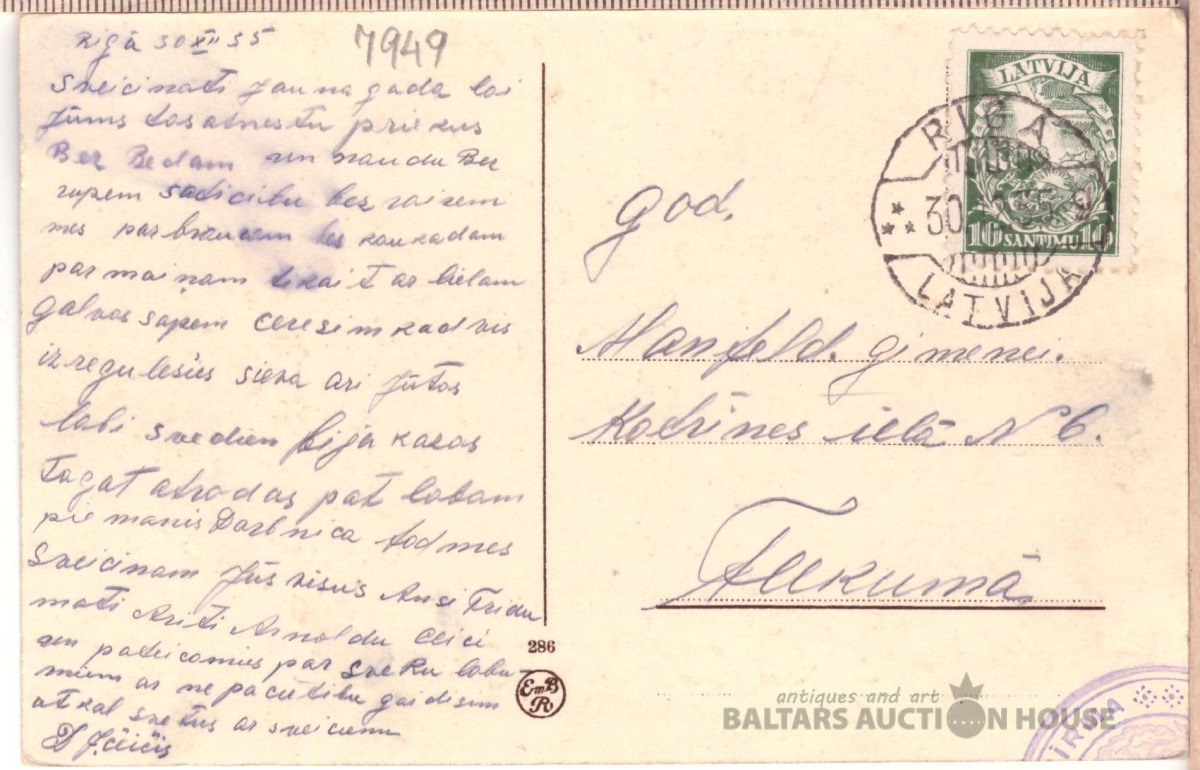 Rīgā 30 XII 35
7949
Sveicinati Jaunagada lai
Jūms tasatnestu priekus
Bez Bedam un naudu Bez
rupem saticibu bez raizem
mes parbraucam bes kaukadam
parmainam tikait ar lielam
galvas sapem ceresim kad viss
izregulesies sieva ari jūtas
labi svedien bija kazas
Tagat atrodas pat labam
pie manis Darbnica todmes
Sveicinam Jūs visus Ansi Fridu
mati Arnoldu
un pateicomies par
mums ar nepacetibu gaidisim
atkal svetus ar sveicienu
LATVIJA
10 SANTIMU 10
RIGA
30
LATVIJA
god.
Manfeld. gimenei.
Katrīnes ielā N 6.
Tukumā
286
EmB
R
antiques and art
BALTARS AUCTION HOUSE